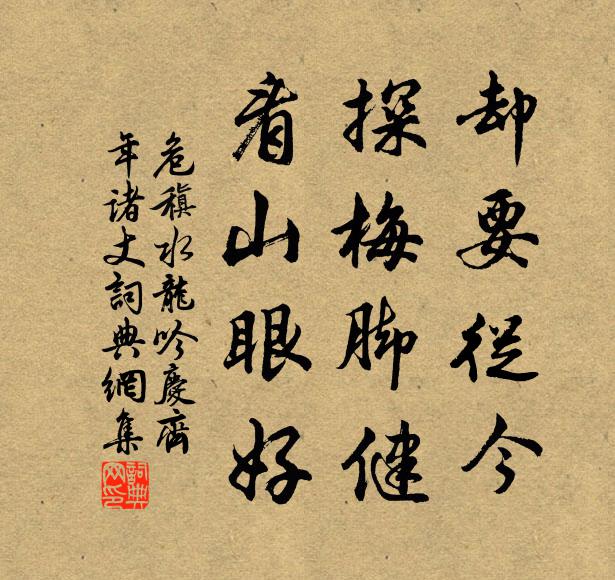 却要從今
探梅脚健
看山眼好
危稹水龍吟慶齊
年諸丈詞典網集
詞典網印